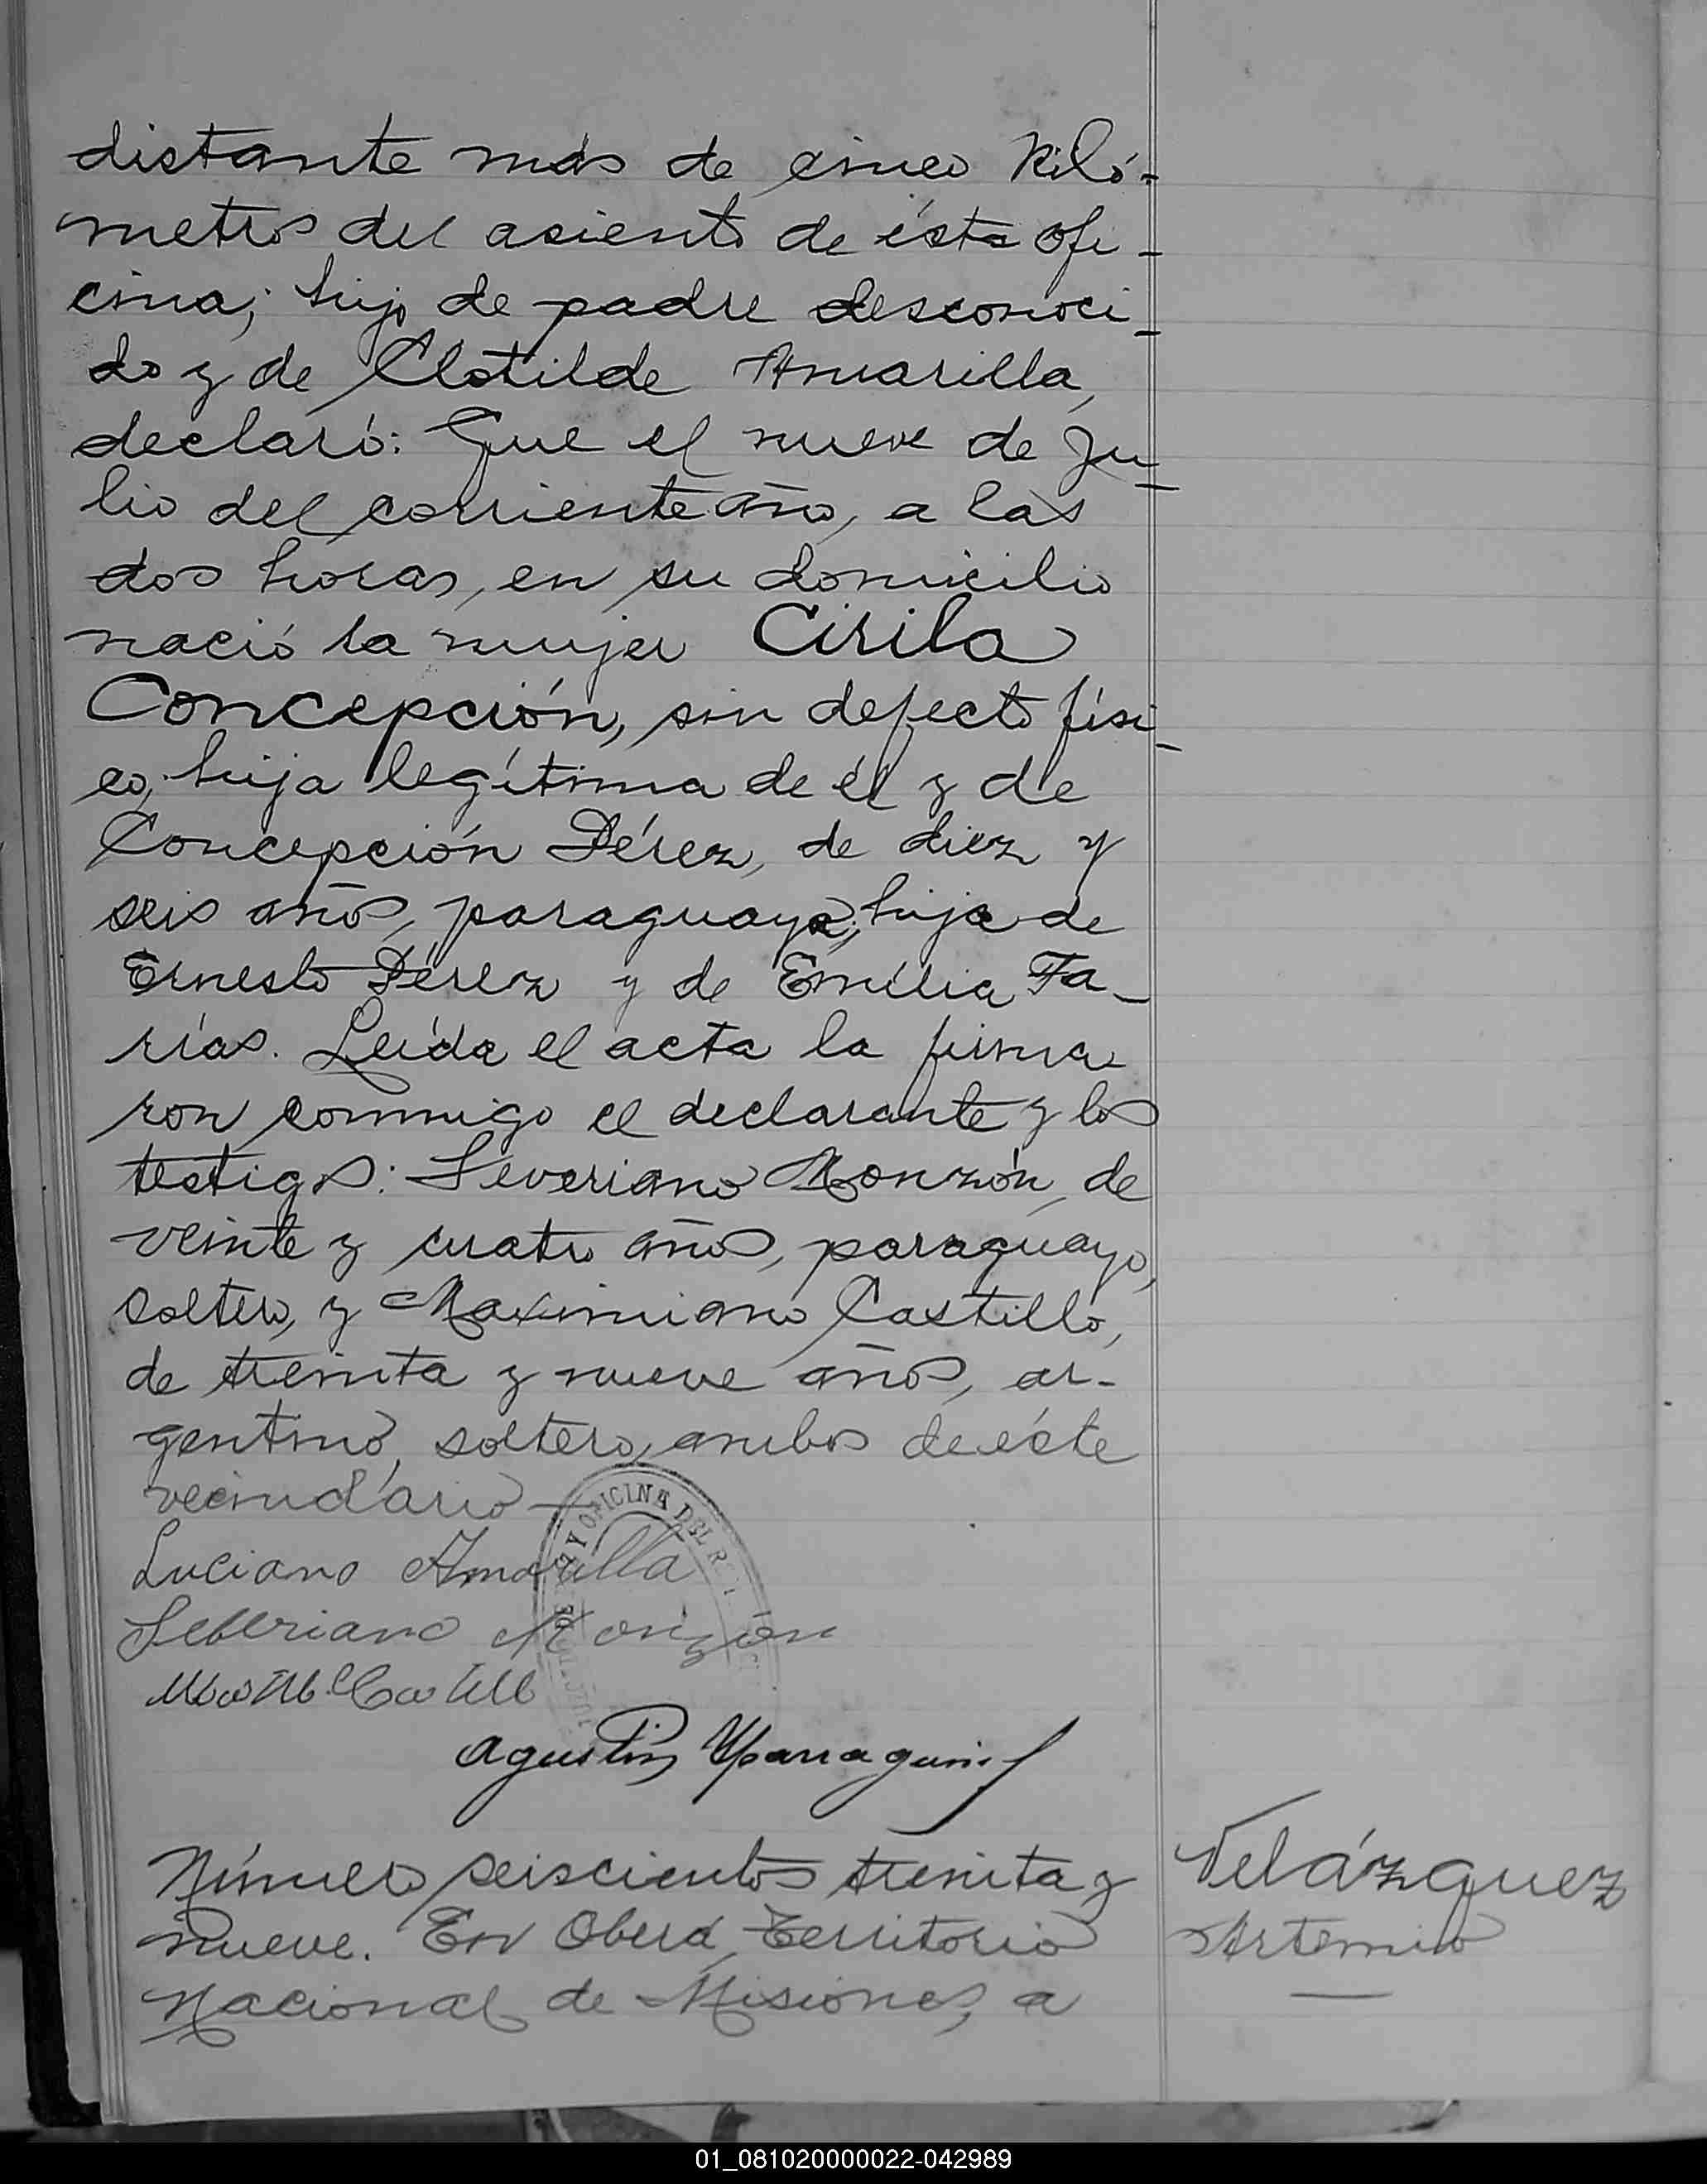 distante más de cinco kiló-
metros del asiento de ésta ofi-
cina; hijo de padre desconoci-
do y de Clotilde Amarilla,
declaró: Que el nueve de Ju-
lio del corriente año, a las
dos horas, en su domicilio
nació la mujer Cirila
Concepción, sin defecto físi-
co, hija legítima de él y de
Concepción Pérez, de diez y
seis años, paraguaya; hija de
Ernesto Pérez y de Emilia Fa-
rías. Leída el acta la firma
ron conmigo el declarante y los
testigos: Severiano Monzón, de
veinte y cuatro años, paraguayo,
soltero, y Maximiano Castillo,
de treinta y nueve años, ar-
gentino, soltero, ambos de éste
vecindario
OFICINA DEL
Luciano Amarilla
Seberiano Monzón
Agustin Yparraguirre
Número seiscientos treinta y
nueve. En Oberá, Territorio
Nacional de Misiones, a
Velázquez
Artemio
01_081020000022-042989